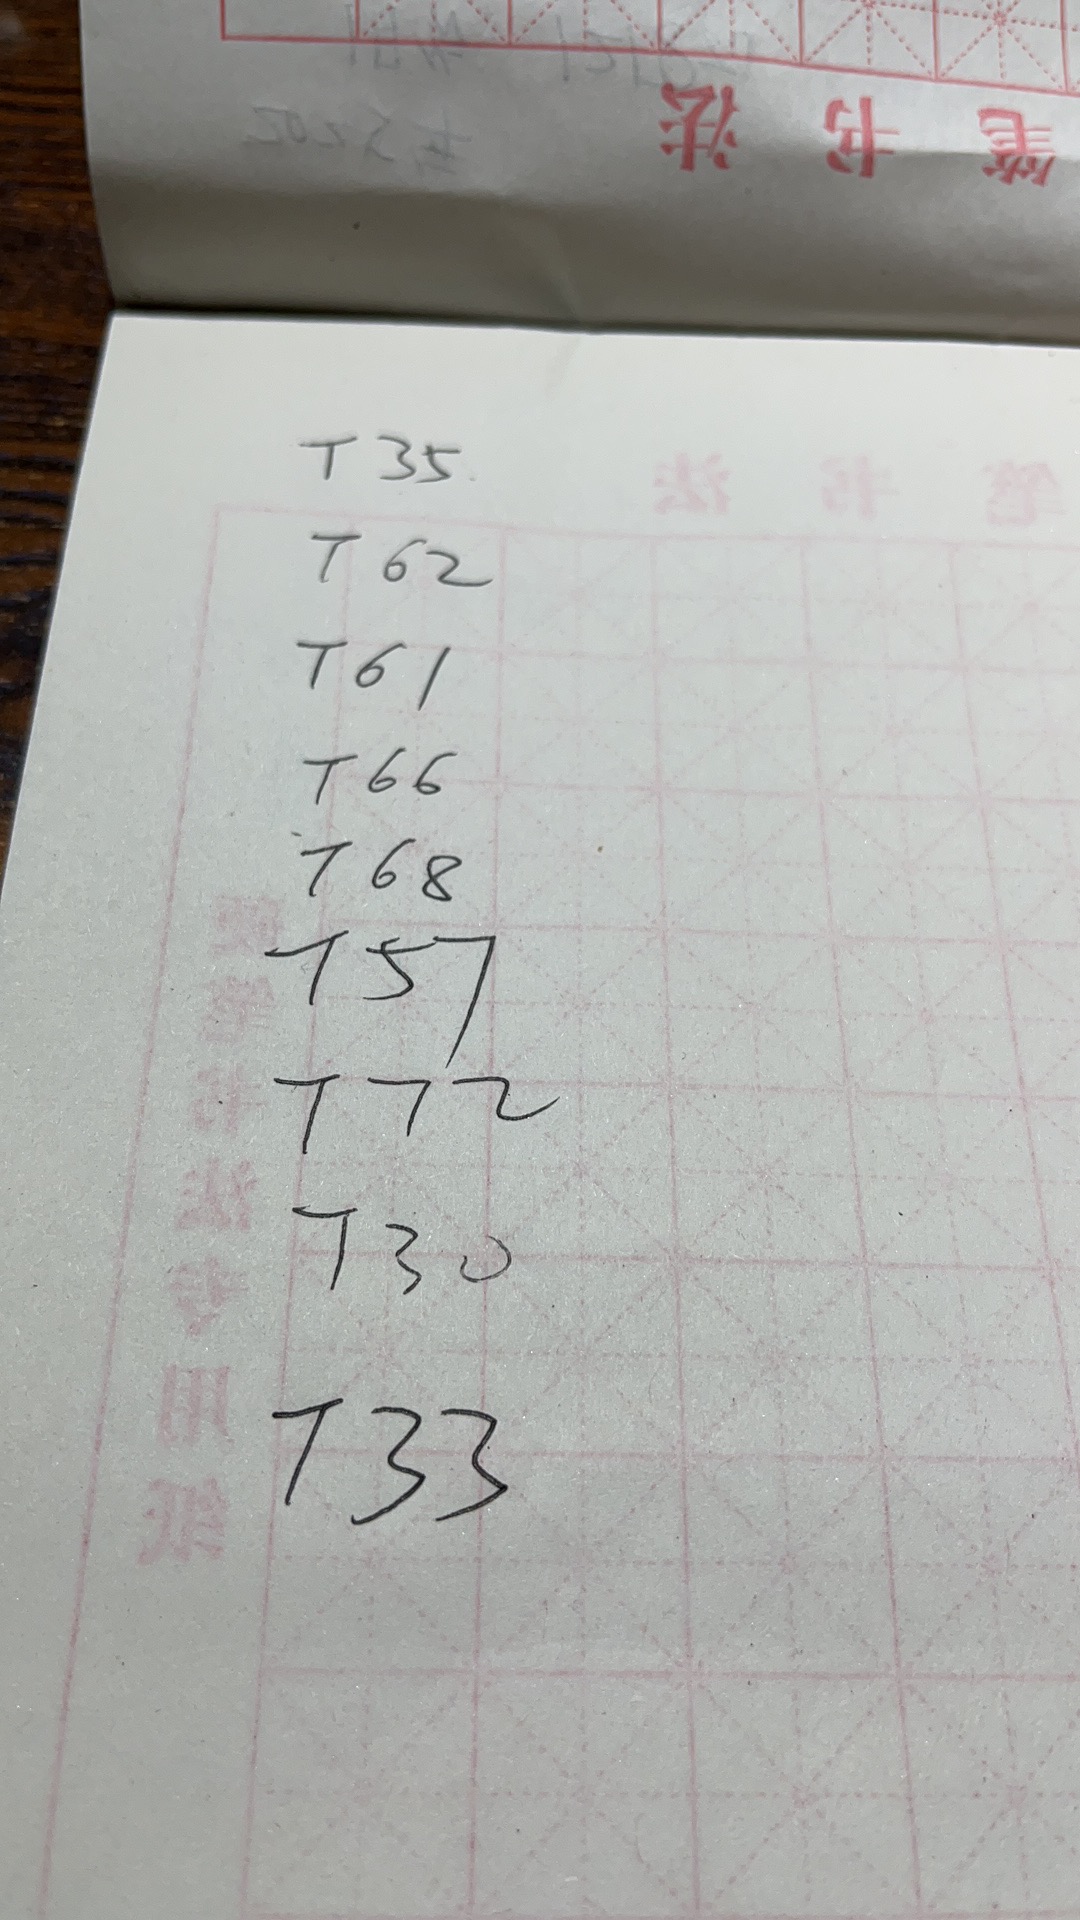 笔 书 法
T35
T62
T61
T66
T68
T57
T72
T30
T33
硬笔书法专用纸